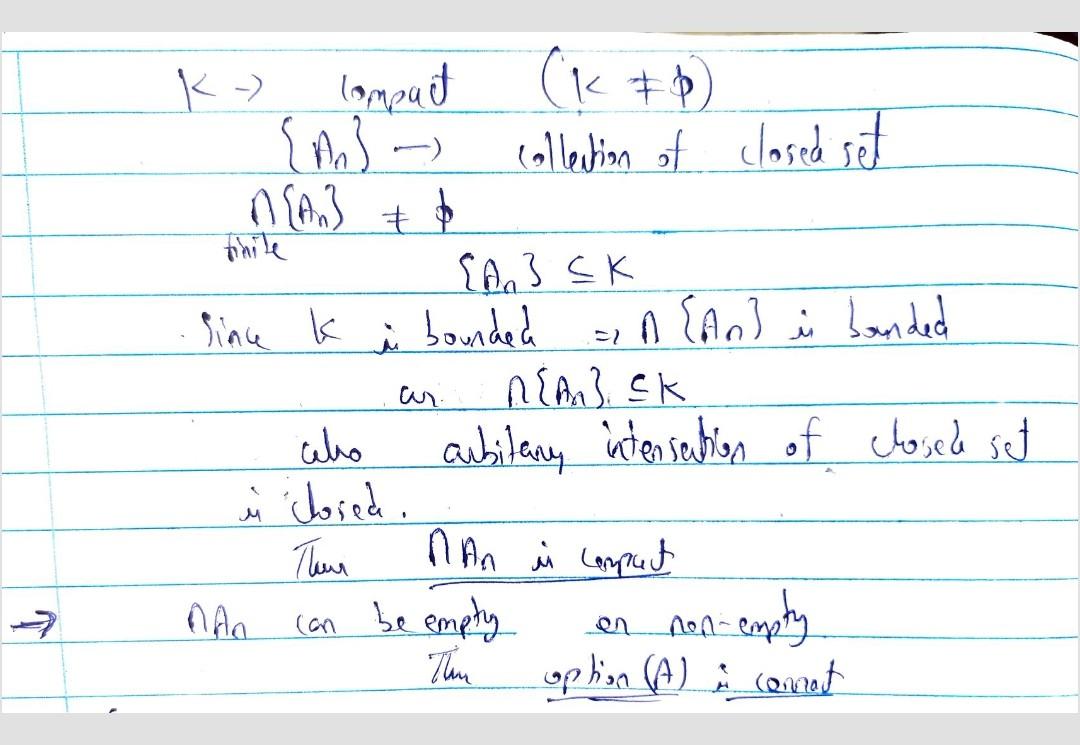 K → compact (K ≠ ϕ)
{An} → collection of closed set
∩{An} ≠ ϕ
finite
{An} ⊆ K
Since K is bounded => ∩ {An} is bounded
as ∩{An} ⊆ K
also arbitary intersection of closed set
is closed.
Thus ∩An is compact
→ ∩An can be empty or non-empty
Thus option (A) is correct